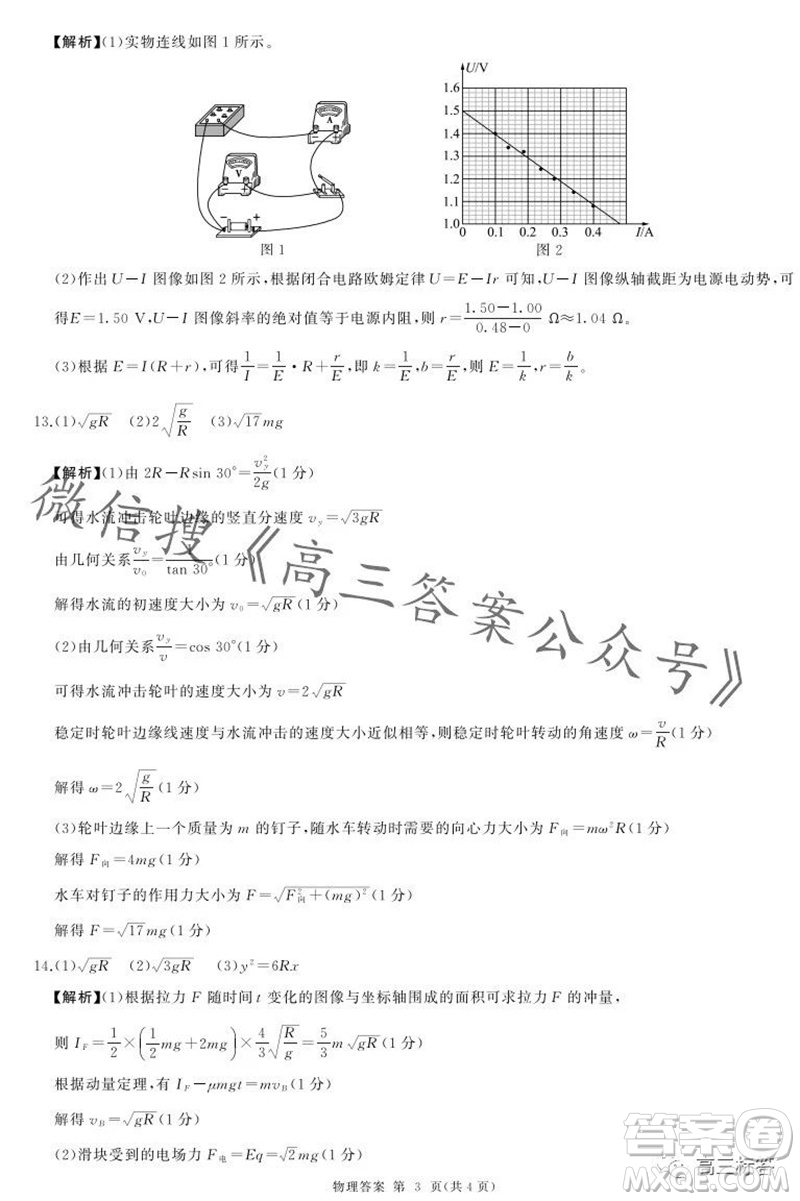 【解析】(1)实物连线如图 1 所示。
A
V
− +
图 1
U/V
1.6
1.5
1.4
1.3
1.2
1.1
1.0
0 0.1 0.2 0.3 0.4 I/A
图 2
(2)作出 U−I 图像如图 2 所示,根据闭合电路欧姆定律 U=E−Ir 可知,U−I 图像纵轴截距为电源电动势,可
得E=1.50 V,U−I 图像斜率的绝对值等于电源内阻,则 r=(1.50−1.00)/(0.48−0) Ω≈1.04 Ω。
(3)根据 E=I(R+r),可得1/I=1/E·R+r/E,即 k=1/E,b=r/E,则 E=1/k,r=b/k。
13.(1)√gR (2)2√(g/R) (3)√17mg
【解析】(1)由 2R−Rsin 30°=v_y²/2g(1 分)
可得水流冲击轮叶边缘的竖直分速度 v_y=√3gR
由几何关系v_y/v₀=1/tan 30°(1 分)
解得水流的初速度大小为 v₀=√gR(1 分)
(2)由几何关系v_y/v=cos 30°(1 分)
可得水流冲击轮叶的速度大小为 v=2√gR
稳定时轮叶边缘线速度与水流冲击的速度大小近似相等,则稳定时轮叶转动的角速度 ω=v/R(1 分)
解得 ω=2√(g/R)(1 分)
(3)轮叶边缘上一个质量为 m 的钉子,随水车转动时需要的向心力大小为 F向=mω²R(1 分)
解得 F向=4mg(1 分)
水车对钉子的作用力大小为 F=√(F向²+(mg)²)(1 分)
解得 F=√17mg(1 分)
14.(1)√gR (2)√3gR (3)y²=6Rx
【解析】(1)根据拉力 F 随时间 t 变化的图像与坐标轴围成的面积可求拉力 F 的冲量,
则 I_F=1/2×(1/2mg+2mg)×4/3√(R/g)=5/3m√gR(1 分)
根据动量定理,有 I_F−μmgt=mv_B(1 分)
解得 v_B=√gR(1 分)
(2)滑块受到的电场力 F电=Eq=√2mg(1 分)
物理答案 第 3 页(共 4 页)
微信搜《高三答案公众号》
答案圈
高三标答
MXQE.COM